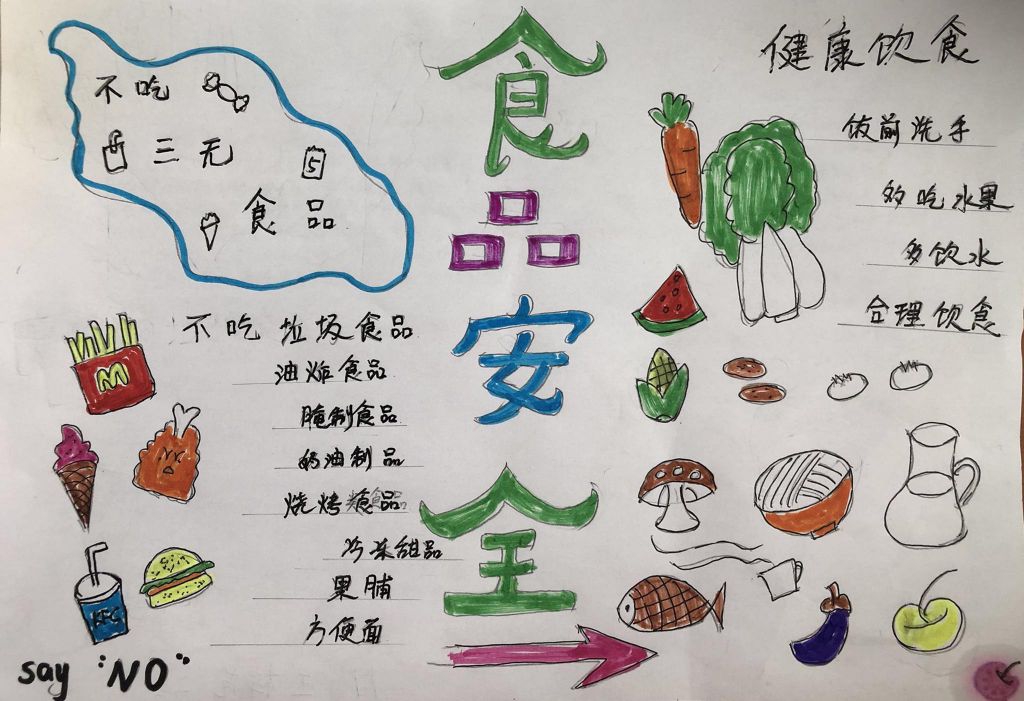 食品安全
不吃
三无
5
食品
不吃垃圾食品
油炸食品
腌制食品
奶油制品
烧烤食品
冷冻甜品
果脯
方便面
M
KFC
say "NO"
健康饮食
饭前洗手
多吃水果
多饮水
合理饮食